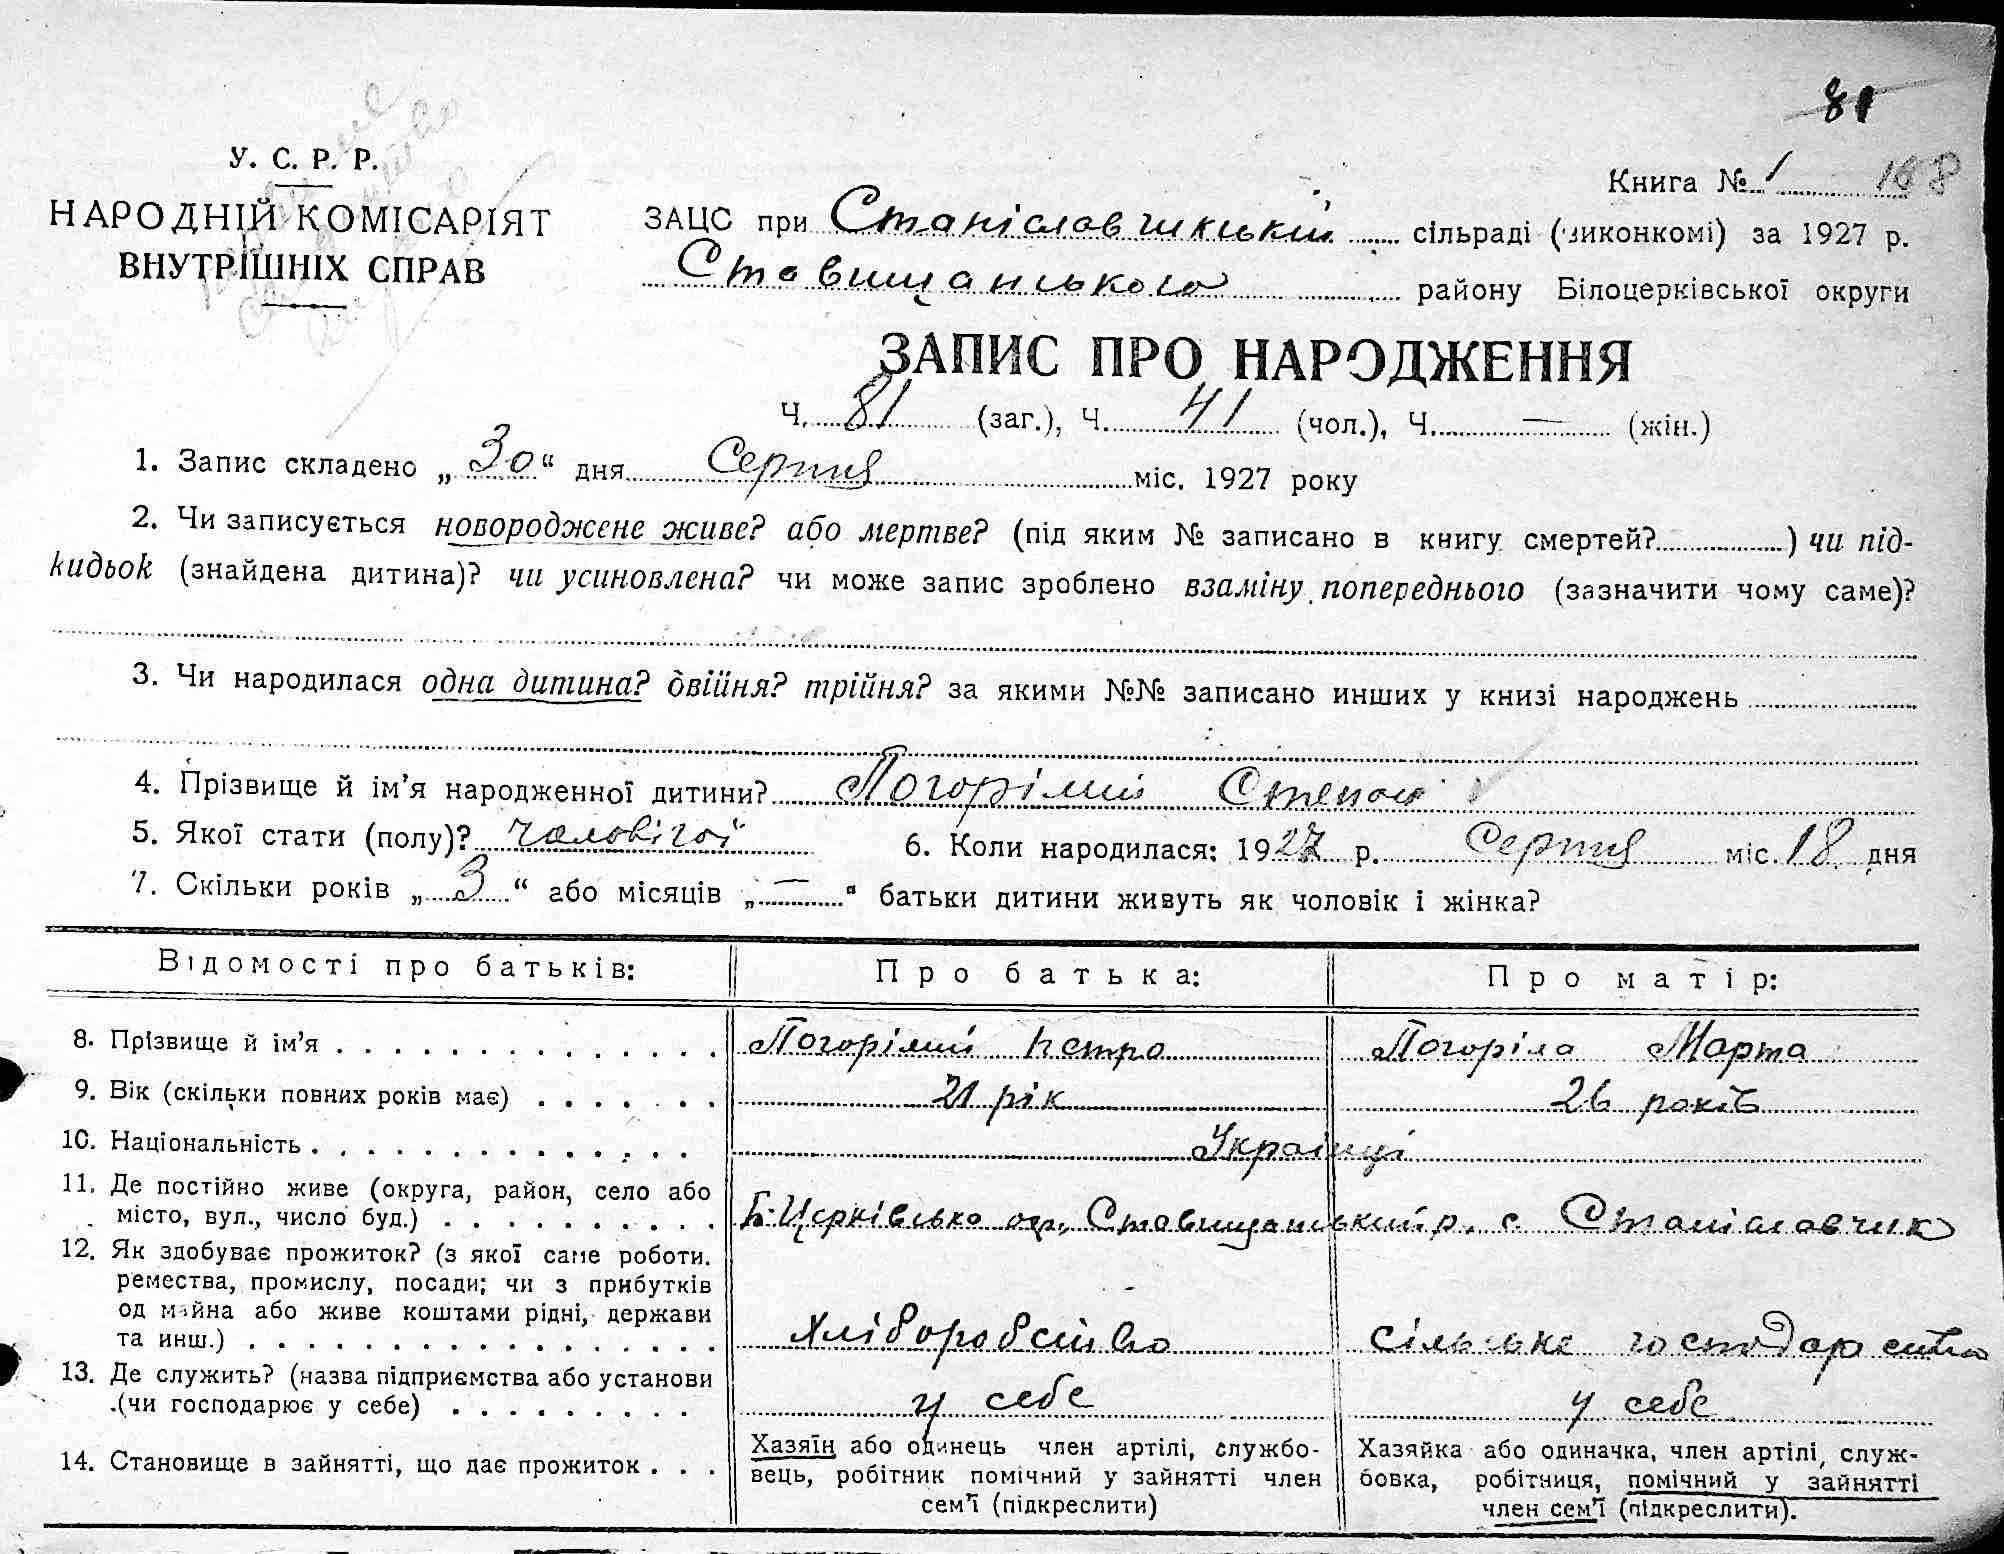 81
У. С. Р. Р.
НАРОДНІЙ КОМІСАРІЯТ
ВНУТРІШНІХ СПРАВ
Книга № 1 188
ЗАЦС при Станіславчикській сільраді (виконкомі) за 1927 р.
Ставищанського району Білоцерківської округи
ЗАПИС ПРО НАРОДЖЕННЯ
Ч. 81 (заг.), Ч. 41 (чол.), Ч. — (жін.)
1. Запис складено „30“ дня Серпня міс. 1927 року
2. Чи записується новороджене живе? або мертве? (під яким № записано в книгу смертей?..........) чи під-
кидьок (знайдена дитина)? чи усиновлена? чи може запис зроблено взаміну попереднього (зазначити чому саме)?
3. Чи народилася одна дитина? двійня? трійня? за якими №№ записано инших у книзі народжень
4. Прізвище й ім’я народженної дитини? Погорілий Степан
5. Якої стати (полу)? чоловічої 6. Коли народилася: 1927 р. Серпня міс. 18 дня
7. Скільки років „3“ або місяців „—“ батьки дитини живуть як чоловік і жінка?
Відомості про батьків: Про батька: Про матір:
8. Прізвище й ім’я . . . . . . . . . . . . . . . Погорілий Петро Погоріла Марта
9. Вік (скільки повних років має) . . . . . . . 21 рік 26 років
10. Національність . . . . . . . . . . . . . . Українці
11. Де постійно живе (округа, район, село або
місто, вул., число буд.) . . . . . . . . . . Б-Церківська окр., Ставищанський р. с. Станіславчик
12. Як здобуває прожиток? (з якої саме роботи.
ремества, промислу, посади; чи з прибутків
од майна або живе коштами рідні, держави
та инш.) . . . . . . . . . . . . . . . . . Хліборобство сільське господарство
13. Де служить? (назва підприємства або установи
(чи господарює у себе) . . . . . . . . . у себе у себе
14. Становище в зайнятті, що дає прожиток . . .
Хазяїн або одинець член артілі, службо-
вець, робітник помічний у зайнятті член
сем’ї (підкреслити)
Хазяйка або одиначка, член артілі, служ-
бовка, робітниця, помічний у зайнятті
член сем’ї (підкреслити).